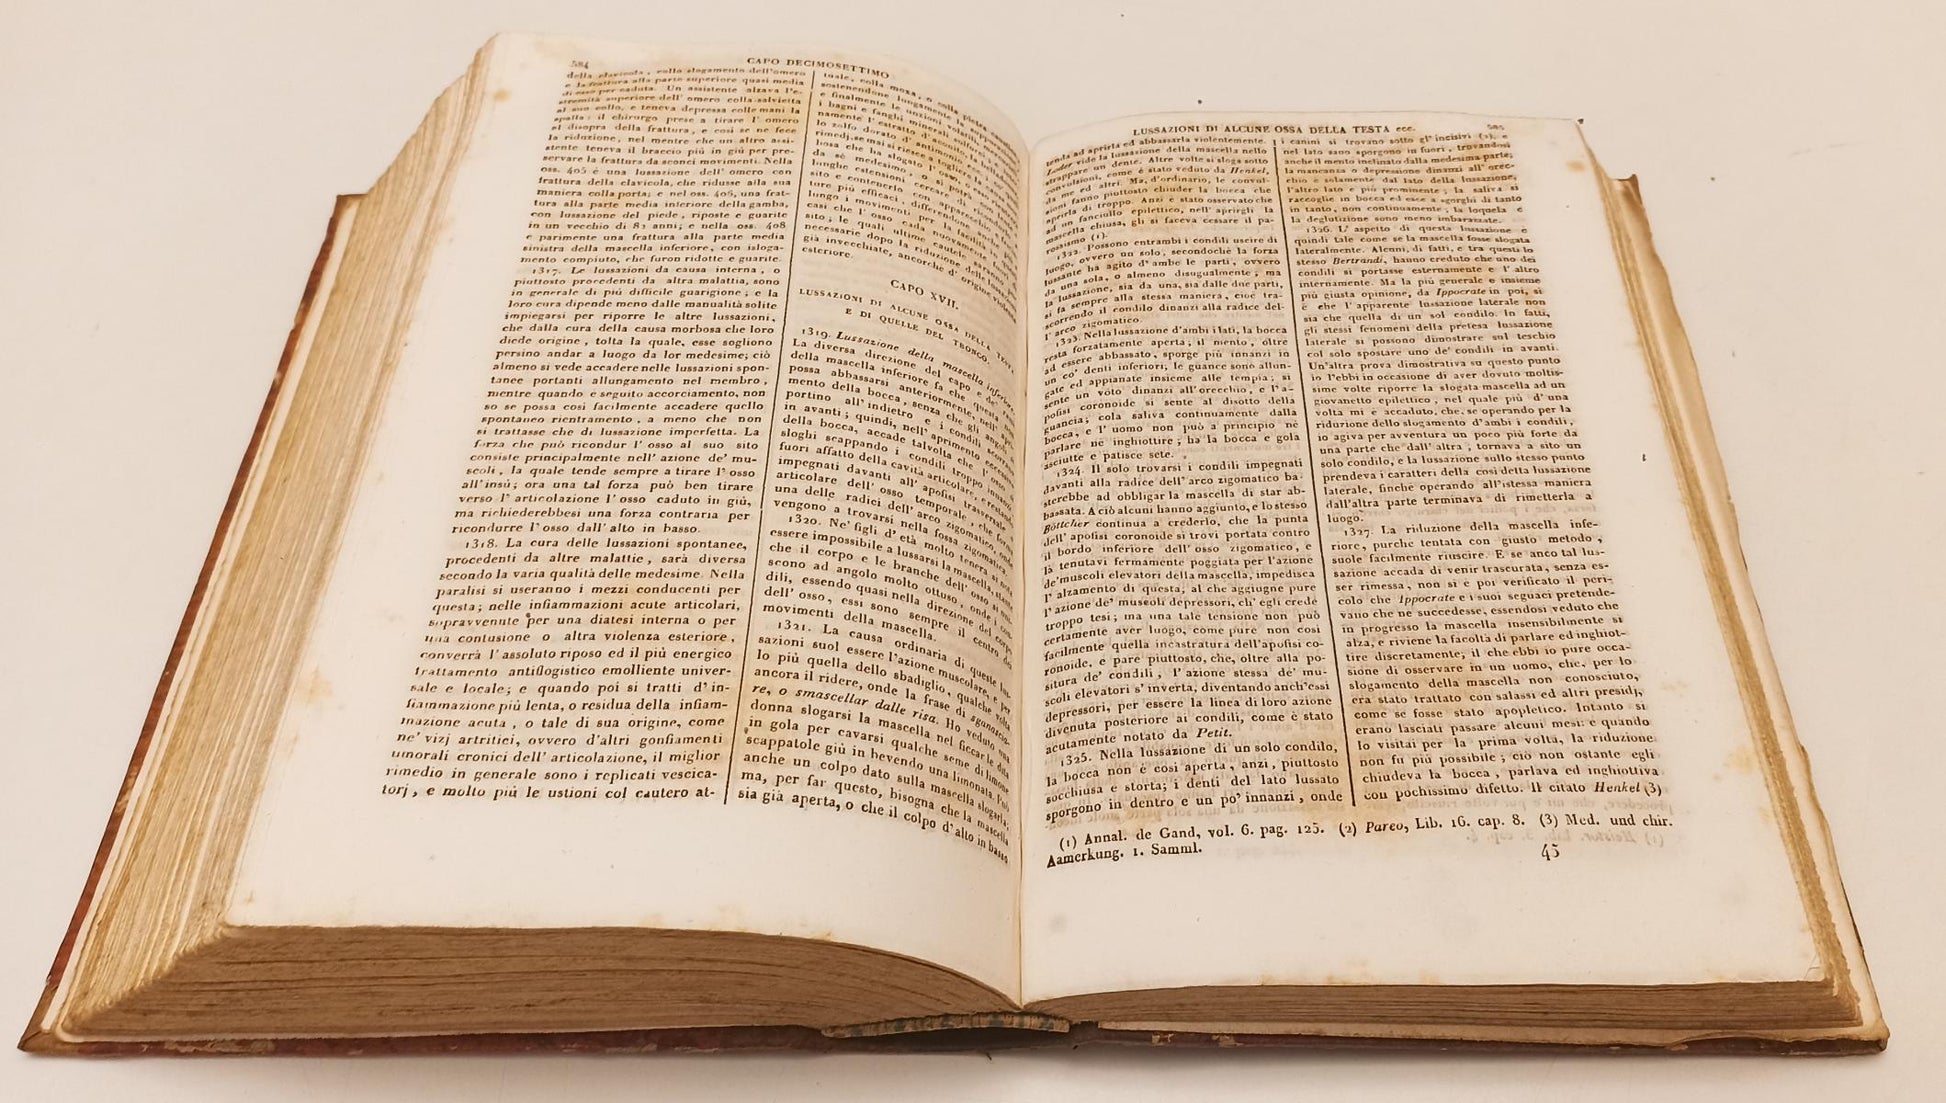 584
CAPO DECIMOSETTIMO
della clavicola, collo slogamento dell'omero
e la frattura alla parte superiore quasi media
di esso per caduta. Un assistente alzava l'e-
stremità superiore dell' omero colla salvietta
al suo collo, e teneva depressa colle mani la
spalla: il chirurgo prese a tirare l' omero
al disopra della frattura, e così se ne fece
la riduzione, nel mentre che un altro assi-
stente teneva il braccio più in giù per pre-
servare la frattura da sconci movimenti. Nella
oss. 405 è una lussazione dell' omero con
frattura della clavicola, che ridusse alla sua
maniera colla porta; e nel oss. 406, una frat-
tura alla parte media inferiore della gamba,
con lussazione del piede, riposte e guarite
in un vecchio di 82 anni; e nella oss. 408
è parimente una frattura alla parte media
sinistra della mascella inferiore, con islog-
amento compiuto, che furon ridotte e guarite.
1317. Le lussazioni da causa interna, o
piuttosto procedenti da altra malattia, sono
in generale di più difficile guarigione; e la
loro cura dipende meno dalle manualità solite
impiegarsi per riporre le altre lussazioni,
che dalla cura della causa morbosa che loro
diede origine, tolta la quale, esse sogliono
persino andar a luogo da lor medesime; ciò
almeno si vede accadere nelle lussazioni spon-
tanee portanti allungamento nel membro,
mentre quando è seguito accorciamento, non
so se possa così facilmente accadere quello
spontaneo rientramento, a meno che non
si trattasse che di lussazione imperfetta. La
forza che può ricondur l' osso al suo sito
consiste principalmente nell' azione de' mu-
scoli, la quale tende sempre a tirare l' osso
all'insù; ora una tal forza può ben tirare
verso l' articolazione l' osso caduto in giù,
ma richiederebbesi una forza contraria per
ricondurre l' osso dall' alto in basso.
1318. La cura delle lussazioni spontanee,
procedenti da altre malattie, sarà diversa
secondo la varia qualità delle medesime. Nella
paralisi si useranno i mezzi conducenti per
questa; nelle infiammazioni acute articolari,
sopravvenute per una diatesi interna o per
una contusione o altra violenza esteriore,
converrà l' assoluto riposo ed il più energico
trattamento antiflogistico emolliente univer-
sale e locale; e quando poi si tratti d' in-
fiammazione più lenta, o residua della infiam-
mazione acuta, o tale di sua origine, come
ne' vizj artritici, ovvero d'altri gonfiamenti
umorali cronici dell' articolazione, il miglior
rimedio in generale sono i replicati vescica-
torj, e molto più le ustioni col cautero at-
tuale, colla moxa, o colla pietra caustica,
sostenendone lungamente la suppurazione;
e finalmente le unzioni volatili,
i bagni e fanghi minerali sulfurei, inter-
namente l' estratto d'aconito, la cicuta,
lo zolfo dorato d' antimonio
rimedj se mai si riesce a togliere la causa mor-
bosa che ha slogato l' osso, o questo rientra
da se medesimo, o si potrà con
lunghe estensioni cercare di
sito e contenerlo con apparecchio
ture più efficaci, differendo
lungo i movimenti per la facilità che in
casi che l' osso ricada nuovamente fuori di
sito; le quali ultime cautele saranno pur
necessarie dopo la riduzione delle lussazioni
già invecchiate, ancorchè d' origine violenta
esteriore.
CAPO XVII.
LUSSAZIONI DI ALCUNE OSSA DELLA TESTA,
E DI QUELLE DEL TRONCO.
1319. Lussazione della mascella inferiore.
La diversa direzione del capo e de' rami
della mascella inferiore fa che questa non
possa abbassarsi anteriormente, nell' apri-
mento della bocca, senza che gli angoli si
portino all' indietro e i condili scorrano
in avanti; quindi, nell' aprimento eccessivo
della bocca, accade talvolta che l' osso si
sloghi scappando i condili troppo innanzi
fuori affatto della cavità articolare, e restando
impegnati davanti all' apofisi trasversale o
articolare dell' osso temporale, che forma
una delle radici dell' arco zigomatico, onde
vengono a trovarsi nella fossa zigomatica.
1320. Ne' figli d' età molto tenera si può
essere impossibile a lussarsi la mascella, stante
che il corpo e le branche dell' osso si uni-
scono ad angolo molto ottuso, onde i con-
dili, essendo quasi nella direzione del corpo
dell' osso, essi sono sempre il centro dei
movimenti della mascella.
1321. La causa ordinaria di queste lus-
sazioni suol essere l'azione muscolare, e per
lo più quella dello sbadiglio, qualche volta
ancora il ridere, onde la frase di sganascia-
re, o smascellar dalle risa. Ho veduto una
donna slogarsi la mascella nel ficcarle dita
in gola per cavarsi qualche seme di limone
scappatole giù in bevendo una limonata. Può
anche un colpo dato sulla mascella slogarla;
ma, per far questo, bisogna che la mascella
sia già aperta, o che il colpo d'alto in basso
LUSSAZIONI DI ALCUNE OSSA DELLA TESTA ecc.
585
tenda ad aprirla ed abbassarla violentemente.
Loder vide la lussazione della mascella nello
strappare un dente. Altre volte si sloga sotto
convulsioni, come è stato veduto da Henkel,
da me ed altri. Ma, d'ordinario, le convul-
sioni fanno piuttosto chiuder la bocca che
aprirla di troppo. Anzi è stato osservato che
ad un fanciullo epilettico, nell' aprirgli la
mascella chiusa, gli si faceva cessare il pa-
rossismo (1).
1322. Possono entrambi i condili uscire di
luogo, ovvero un solo, secondochè la forza
lussante ha agito d' ambe le parti, ovvero
da una sola, o almeno disugualmente; ma
la lussazione, sia da una, sia dalle due parti,
si fa sempre alla stessa maniera, cioè tra-
scorrendo il condilo dinanzi alla radice del-
l' arco zigomatico.
1323. Nella lussazione d'ambi i lati, la bocca
resta forzatamente aperta; il mento, oltre
ad essere abbassato, sporge più innanzi in
un co' denti inferiori; le guance sono allun-
gate ed appianate insieme alle tempia; si
sente un vôto dinanzi all'orecchio, e l'a-
pofisi coronoide si sente al disotto della
guancia; cola saliva continuamente dalla
bocca, e l' uomo non può a principio nè
parlare nè inghiottire; ha la bocca e gola
asciutte e patisce sete.
1324. Il solo trovarsi i condili impegnati
davanti alla radice dell' arco zigomatico ba-
sterebbe ad obbligar la mascella di star ab-
bassata. A ciò alcuni hanno aggiunto, e lo stesso
Böttcher continua a crederlo, che la punta
dell' apofisi coronoide si trovi portata contro
il bordo inferiore dell' osso zigomatico, e
là tenutavi fermamente poggiata per l'azione
de'muscoli elevatori della mascella, impedisca
l' alzamento di questa, al che aggiugne pure
l' azione de' muscoli depressori, ch' egli crede
troppo tesi; ma una tale tensione non può
certamente aver luogo, come pure non così
facilmente quella incastratura dell'apofisi co-
ronoide, e pare piuttosto, che, oltre alla po-
situra de' condili, l' azione stessa de' mu-
scoli elevatori s' inverta, diventando anch'essi
depressori, per essere la linea di loro azione
divenuta posteriore ai condili, come è stato
acutamente notato da Petit.
1325. Nella lussazione di un solo condilo,
la bocca non è così aperta, anzi, piuttosto
socchiusa e storta; i denti del lato lussato
sporgono in dentro e un po' innanzi, onde
i canini si trovano sotto gl' incisivi (2), e
nel lato sano sporgono in fuori, trovandosi
anche il mento inclinato dalla medesima parte;
la mancanza o depressione dinanzi all' orec-
chio è solamente dal lato della lussazione,
l'altro lato è più prominente; la saliva si
raccoglie in bocca ed esce a sgorghi di tanto
in tanto, non continuamente; la loquela e
la deglutizione sono meno imbarazzate.
1326. L' aspetto di questa lussazione è
quindi tale come se la mascella fosse slogata
lateralmente. Alcuni, di fatti, e tra questi lo
stesso Bertrandi, hanno creduto che uno dei
condili si portasse esternamente e l' altro
internamente. Ma la più generale e insieme
più giusta opinione, da Ippocrate in poi,
è che l' apparente lussazione laterale non
sia che quella di un sol condilo. In fatti,
gli stessi fenomeni della pretesa lussazione
laterale si possono dimostrare sul teschio
col solo spostare uno de' condili in avanti.
Un'altra prova dimostrativa su questo punto
io l'ebbi in occasione di aver dovuto moltis-
sime volte riporre la slogata mascella ad un
giovanetto epilettico, nel quale più d' una
volta mi è accaduto, che, se operando per la
riduzione dello slogamento d'ambi i condili,
io agiva per avventura un poco più forte da
una parte che dall' altra, tornava a sito un
solo condilo, e la lussazione sullo stesso punto
prendeva i caratteri della così detta lussazione
laterale, finchè operando all'istessa maniera
dall'altra parte terminava di rimetterla a
luogo.
1327. La riduzione della mascella infe-
riore, purchè tentata con giusto metodo,
suole facilmente riuscire. E se anco tal lus-
sazione accada di venir trascurata, senza es-
ser rimessa, non si è poi verificato il peri-
colo che Ippocrate e i suoi seguaci pretende-
vano che ne succedesse, essendosi veduto che
in progresso la mascella insensibilmente si
alza, e riviene la facoltà di parlare ed inghiot-
tire discretamente, il che ebbi io pure occa-
sione di osservare in un uomo, che, per lo
slogamento della mascella non conosciuto,
era stato trattato con salassi ed altri presidj,
come se fosse stato apopletico. Intanto si
erano lasciati passare alcuni mesi: e quando
lo visitai per la prima volta, la riduzione
non fu più possibile; ciò non ostante egli
chiudeva la bocca, parlava ed inghiottiva
con pochissimo difetto. Il citato Henkel (3)
(1) Annal. de Gand, vol. 6. pag. 125. (2) Pareo, Lib. 16. cap. 8. (3) Med. und chir.
Aamerkung. 1. Samml.
45